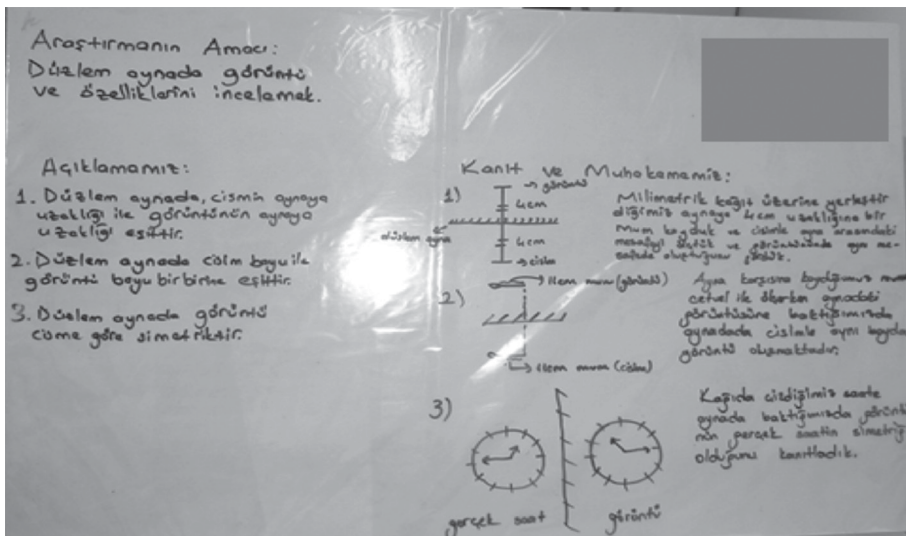 Araştırmanın Amacı:
Düzlem aynada görüntü
ve özelliklerini incelemek.
Açıklamamız:
1. Düzlem aynada, cismin aynaya
uzaklığı ile görüntünün aynaya
uzaklığı eşittir.
2. Düzlem aynada cisim boyu ile
görüntü boyu birbirine eşittir.
3. Düzlem aynada görüntü
cisme göre simetriktir.
Kanıt ve Muhakememiz:
1)
görüntü
4cm
düzlem ayna
4cm
cisim
Milimetrik kağıt üzerine yerleştir
diğimiz aynaya 4cm uzaklığına bir
Mum koyduk ve cisimle ayna arasındaki
mesafeyi ölçtük ve görüntüsünde aynı me-
safede oluştuğunu gördük.
2)
11cm mum (görüntü)
11cm mum (cisim)
Ayna karşısına koyduğumuz mum
cetvel ile ölçerken aynadaki
görüntüsüne baktığımızda
aynadada cisimle aynı boyda
görüntü oluşmaktadır.
3)
gerçek saat
görüntü
Kağıda çizdiğimiz saate
aynada baktığımızda görüntü
nün gerçek saatin simetriği
olduğunu kanıtladık.